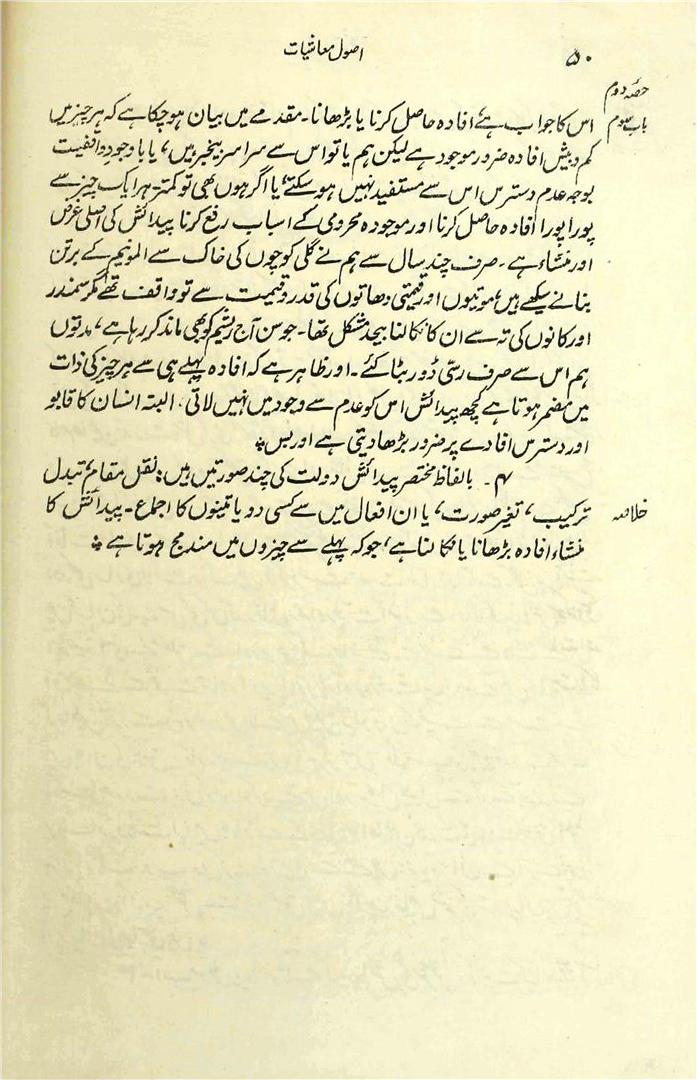 ۵۰
اصول معاشیات
حصہ دوم
باب سوم
اس کا جواب ہے افادہ حاصل کرنا یا بڑھانا۔ مقدمے میں بیان ہو چکا ہے کہ ہر چیز میں
کم و بیش افادہ ضرور موجود ہے لیکن ہم یا تو اس سے سراسر بیخبر ہیں، یا باوجود واقفیت
بوجہ عدم دسترس اس سے مستفید نہیں ہو سکتے، یا اگر ہوں بھی تو کمتر۔ ہر ایک چیز سے
پورا پورا افادہ حاصل کرنا اور موجودہ محرومی کے اسباب رفع کرنا پیدائش کی اصلی غرض
اور منشاء ہے۔ صرف چند سال سے ہم نے گلی کوچوں کی خاک سے المونیم کے برتن
بنانے سیکھے ہیں، موتیوں اور قیمتی دھاتوں کی قدر و قیمت سے تو واقف تھے مگر سمندر
اور کانوں کی تہ سے ان کا نکالنا بیحد مشکل تھا۔ جو سن آج ریشم کو بھی ماند کر رہا ہے، مدتوں
ہم اس سے صرف رسی ڈور بٹا کئے۔ اور ظاہر ہے کہ افادہ پہلے ہی سے ہر چیز کی ذات
میں مضمر ہوتا ہے کچھ پیدائش اس کو عدم سے وجود میں نہیں لاتی، البتہ انسان کا قابو
اور دسترس افادے پر ضرور بڑھا دیتی ہے اور بس؞
۴۔ بالفاظ مختصر پیدائش دولت کی چند صورتیں ہیں: نقل مقام، تبدل
خلاصہ
ترکیب، تغیر صورت، یا ان افعال میں سے کسی دو یا تینوں کا اجماع۔ پیدائش کا
منشاء افادہ بڑھانا یا نکالنا ہے، جو کہ پہلے سے چیزوں میں مندمج ہوتا ہے ؞